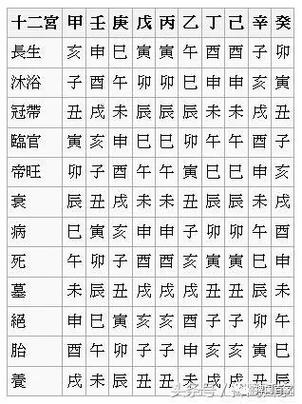 十二宮 甲 壬 庚 戊 丙 乙 丁 己 辛 癸
長生 亥 申 巳 寅 寅 午 酉 酉 子 卯
沐浴 子 酉 午 卯 卯 巳 申 申 亥 寅
冠帶 丑 戌 未 辰 辰 辰 未 未 戌 丑
臨官 寅 亥 申 巳 巳 卯 午 午 酉 子
帝旺 卯 子 酉 午 午 寅 巳 巳 申 亥
衰 辰 丑 戌 未 未 丑 辰 辰 未 戌
病 巳 寅 亥 申 申 子 卯 卯 午 酉
死 午 卯 子 酉 酉 亥 寅 寅 巳 申
墓 未 辰 丑 戌 戌 戌 丑 丑 辰 未
絕 申 巳 寅 亥 亥 酉 子 子 卯 午
胎 酉 午 卯 子 子 申 亥 亥 寅 巳
養 戌 未 辰 丑 丑 未 戌